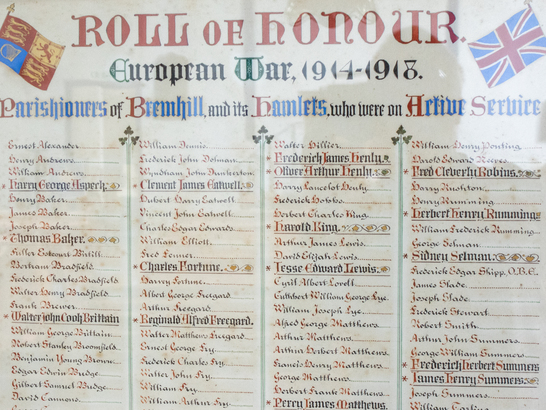 ROLL OF HONOUR.
European War, 1914-1918.
Parishioners of Bremhill, and its Hamlets, who were on Active Service
Ernest Alexander
Henry Andrews
William Andrews
* Harry George Aspeck
Henry Baker
James Baker
Joseph Baker
* Thomas Baker.
Bertram Bradfield
Frederick Charles Bradfield
Walter Henry Bradfield
Frank Brewer
* Walter John Cook Brittain
William George Brittain
Robert Stanley Broomfield
Benjamin Young Brown
Edgar Edwin Budge
Gilbert Samuel Budge
David Cannons
William Dennis
Frederick John Dolman
Wyndham John Dunkerton
* Clement James Eatwell
Hubert Harry Eatwell
Vincent John Eatwell
Charles Edgar Edwards
William Elliott
Fred Fenner
* Charles Fortune.
Harry Fortune
Albert George Freegard
Arthur Freegard
* Reginald Alfred Freegard.
Walter Matthew Freegard
Ernest George Fry
Frederick Charles Fry
Walter John Fry
William Fry
William Arthur Fry
Walter Hillier
* Frederick James Henly
* Oliver Arthur Henly
Harry Lancelot Henly
Frederick Hobbs
Herbert Charles King
* Harold King
Arthur James Lewis
David Elijah Lewis
* Jesse Edward Lewis
Cyril Albert Lovell
Cuthbert William George Lye
William Joseph Lye
Alfred George Matthews
Arthur Matthews
Arthur Herbert Matthews
Francis Henry Matthews
George Matthews
Herbert Frank Matthews
* Percy James Matthews
William Henry Ponting
Harold Edward Reeves
* Fred Cleverly Robins
Harry Rushton
Henry Rumming
* Herbert Henry Rumming
William Frederick Rumming
George Selman
* Sidney Selman
Frederick Edgar Shipp, O.B.E.
James Slade
Joseph Slade
Frederick Stewart
Robert Smith
Arthur John Summers
George William Summers
* Frederick Herbert Summers
* James Henry Summers
Joseph Summers
William